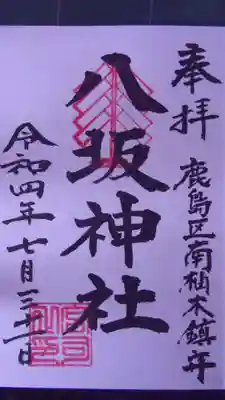 奉拝
鹿島区南柚木鎮座
八坂神社
令和四年七月二十一日